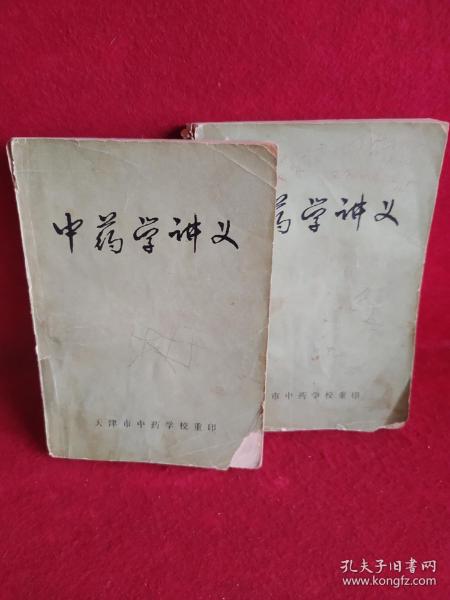 中药学讲义
天津市中药学校重印
药学讲义
市中药学校重印
孔夫子旧书网
www.kongfz.com